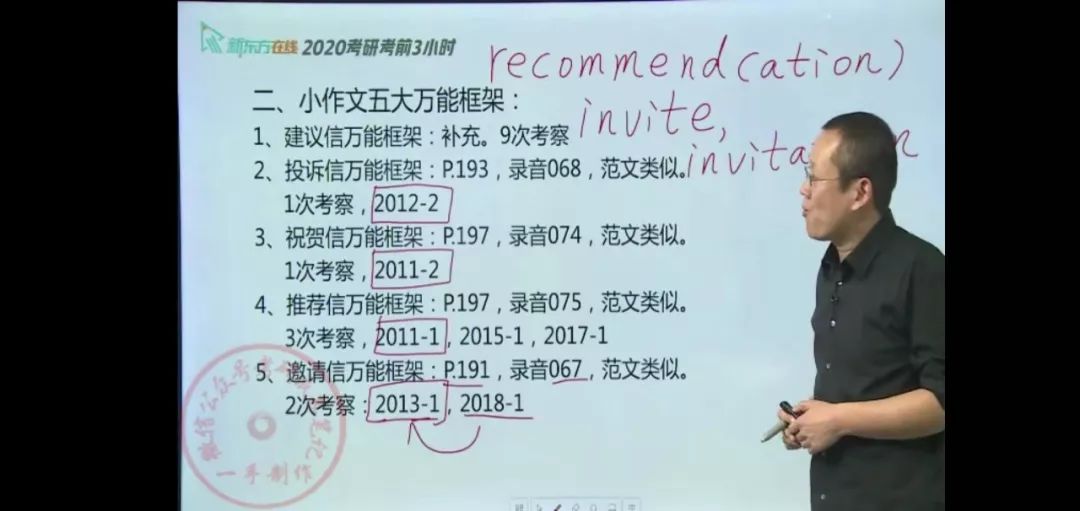 新东方在线 2020考研考前3小时
recommend(cation)
二、小作文五大万能框架：
invite,
1、建议信万能框架：补充。9次考察
2、投诉信万能框架：P.193，录音068，范文类似。
1次考察，2012-2
3、祝贺信万能框架：P.197，录音074，范文类似。
1次考察，2011-2
4、推荐信万能框架：P.197，录音075，范文类似。
3次考察，2011-1，2015-1，2017-1
5、邀请信万能框架：P.191，录音067，范文类似。
2次考察：2013-1，2018-1
一手制作